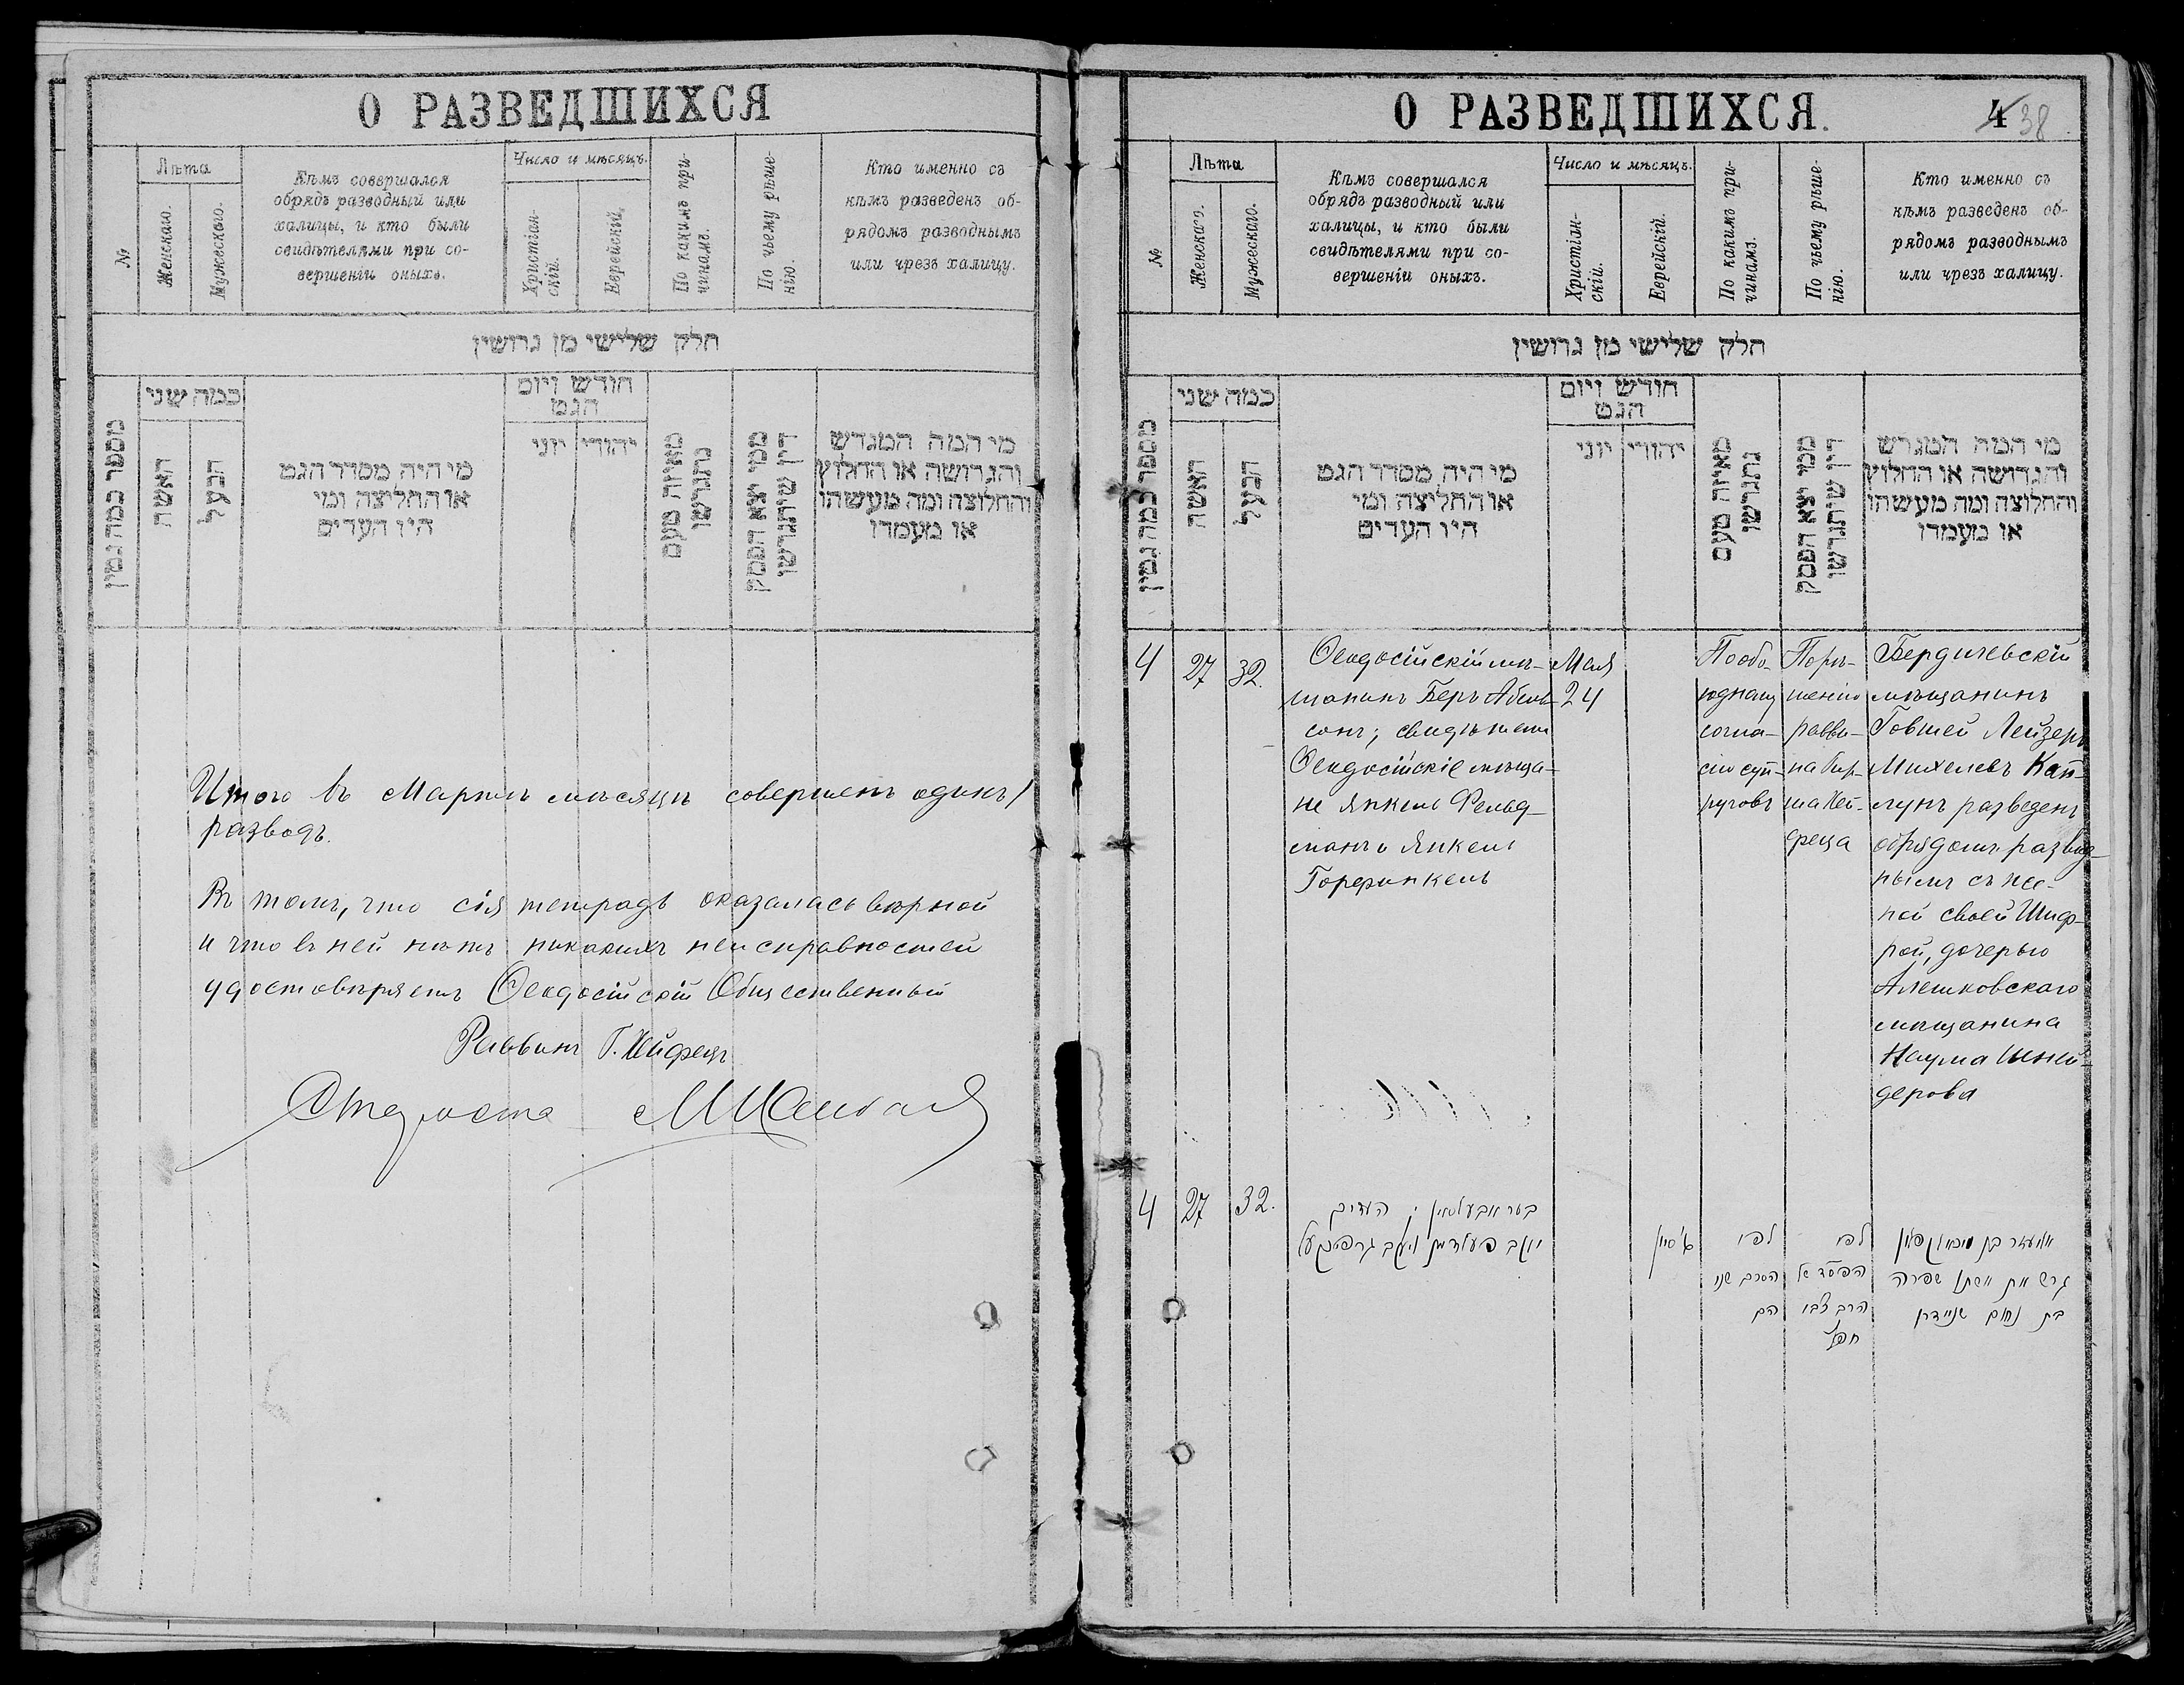 О РАЗВЕДШИХСЯ
№
Лѣта
Женскаго.
Мужескаго.
Кѣмъ совершался
обрядъ разводный или
халицы, и кто были
свидѣтелями при со-
вершеніи оныхъ.
Число и мѣсяцъ.
Христіан-
скій.
Еврейскій.
По какимъ при-
чинамъ.
По чьему рѣше-
нію.
Кто именно съ
кѣмъ разведенъ об-
рядомъ разводнымъ
или чрезъ халицу.
חלק שלישי מן גרושין
מספר כמה גטין
כמה שני
האשה
הבעל
מי היה מסדר הגט
או החליצה ומי
היו העדים
חודש ויום
הגט
יוני
יהודי
מאיזה טעם
נתגרשו
ממי יצא הפסק
דין שיתגרשו
מי המה המגרש
והגרושה או החלוץ
והחלוצה ומה מעשהו
או מעמדו
Итого въ Мартѣ мѣсяцѣ совершенъ одинъ 1
разводъ.
Въ томъ, что сія тетрадь оказалась вѣрной
и что въ ней нѣтъ никакихъ неисправностей
удостовѣряетъ Ѳеодосійскій Общественный
Раввинъ Г. Хейфецъ
Староста
О РАЗВЕДШИХСЯ.
4 38
№
Лѣта
Женскаго.
Мужескаго.
Кѣмъ совершался
обрядъ разводный или
халицы, и кто были
свидѣтелями при со-
вершеніи оныхъ.
Число и мѣсяцъ.
Христіан-
скій.
Еврейскій.
По какимъ при-
чинамъ.
По чьему рѣше-
нію.
Кто именно съ
кѣмъ разведенъ об-
рядомъ разводнымъ
или чрезъ халицу.
חלק שלישי מן גרושין
מספר כמה גטין
כמה שני
האשה
הבעל
מי היה מסדר הגט
או החליצה ומי
היו העדים
חודש ויום
הגט
יוני
יהודי
מאיזה טעם
נתגרשו
ממי יצא הפסק
דין שיתגרשו
מי המה המגרש
והגרושה או החלוץ
והחלוצה ומה מעשהו
או מעמדו
4
27
32.
Ѳеодосійскій мѣ-
щанинъ Беръ Абель-
сонъ; свидѣтели
Ѳеодосійскіе мѣща-
не Янкель Фельд-
манъ и Янкель
Горфинкель
Мая
24
По обо-
юдному
согла-
сію суп-
руговъ
По рѣ-
шенію
равви-
на Гир-
ша Хей-
феца
Бердичевскій
мѣщанинъ
Говшей Лейзеръ
Михелевъ Кап-
лунъ разведенъ
обрядомъ развод-
нымъ съ же-
ной своей Шиф-
рой, дочерью
Алешковскаго
мѣщанина
Наума Шней-
дерова
4
27
32.
בער אבעלסאן ; העדים
יעקב פעלדמן ויעקב גרפינקעל
ט' סיון
לפי
הסכם שני
הם
לפי
הפסד של
הרב צבי
חפץ
גרש את אשתו שפרה
בת נחום שניידר